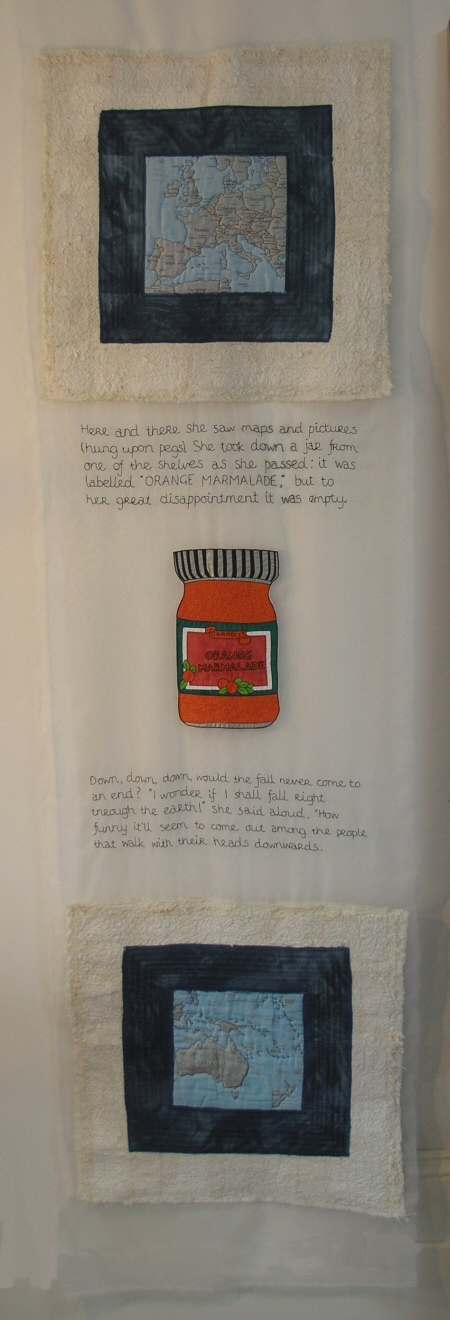 Here and there she saw maps and pictures
(hung upon pegs) She took down a jar from
one of the shelves as she passed: it was
labelled "ORANGE MARMALADE," but to
her great disappointment it was empty.
ORANGE
MARMALADE
Down, down, down, would the fall never come to
an end? "I wonder if I shall fall right
through the earth!" she said aloud. "How
funny it'll seem to come out among the people
that walk with their heads downwards.